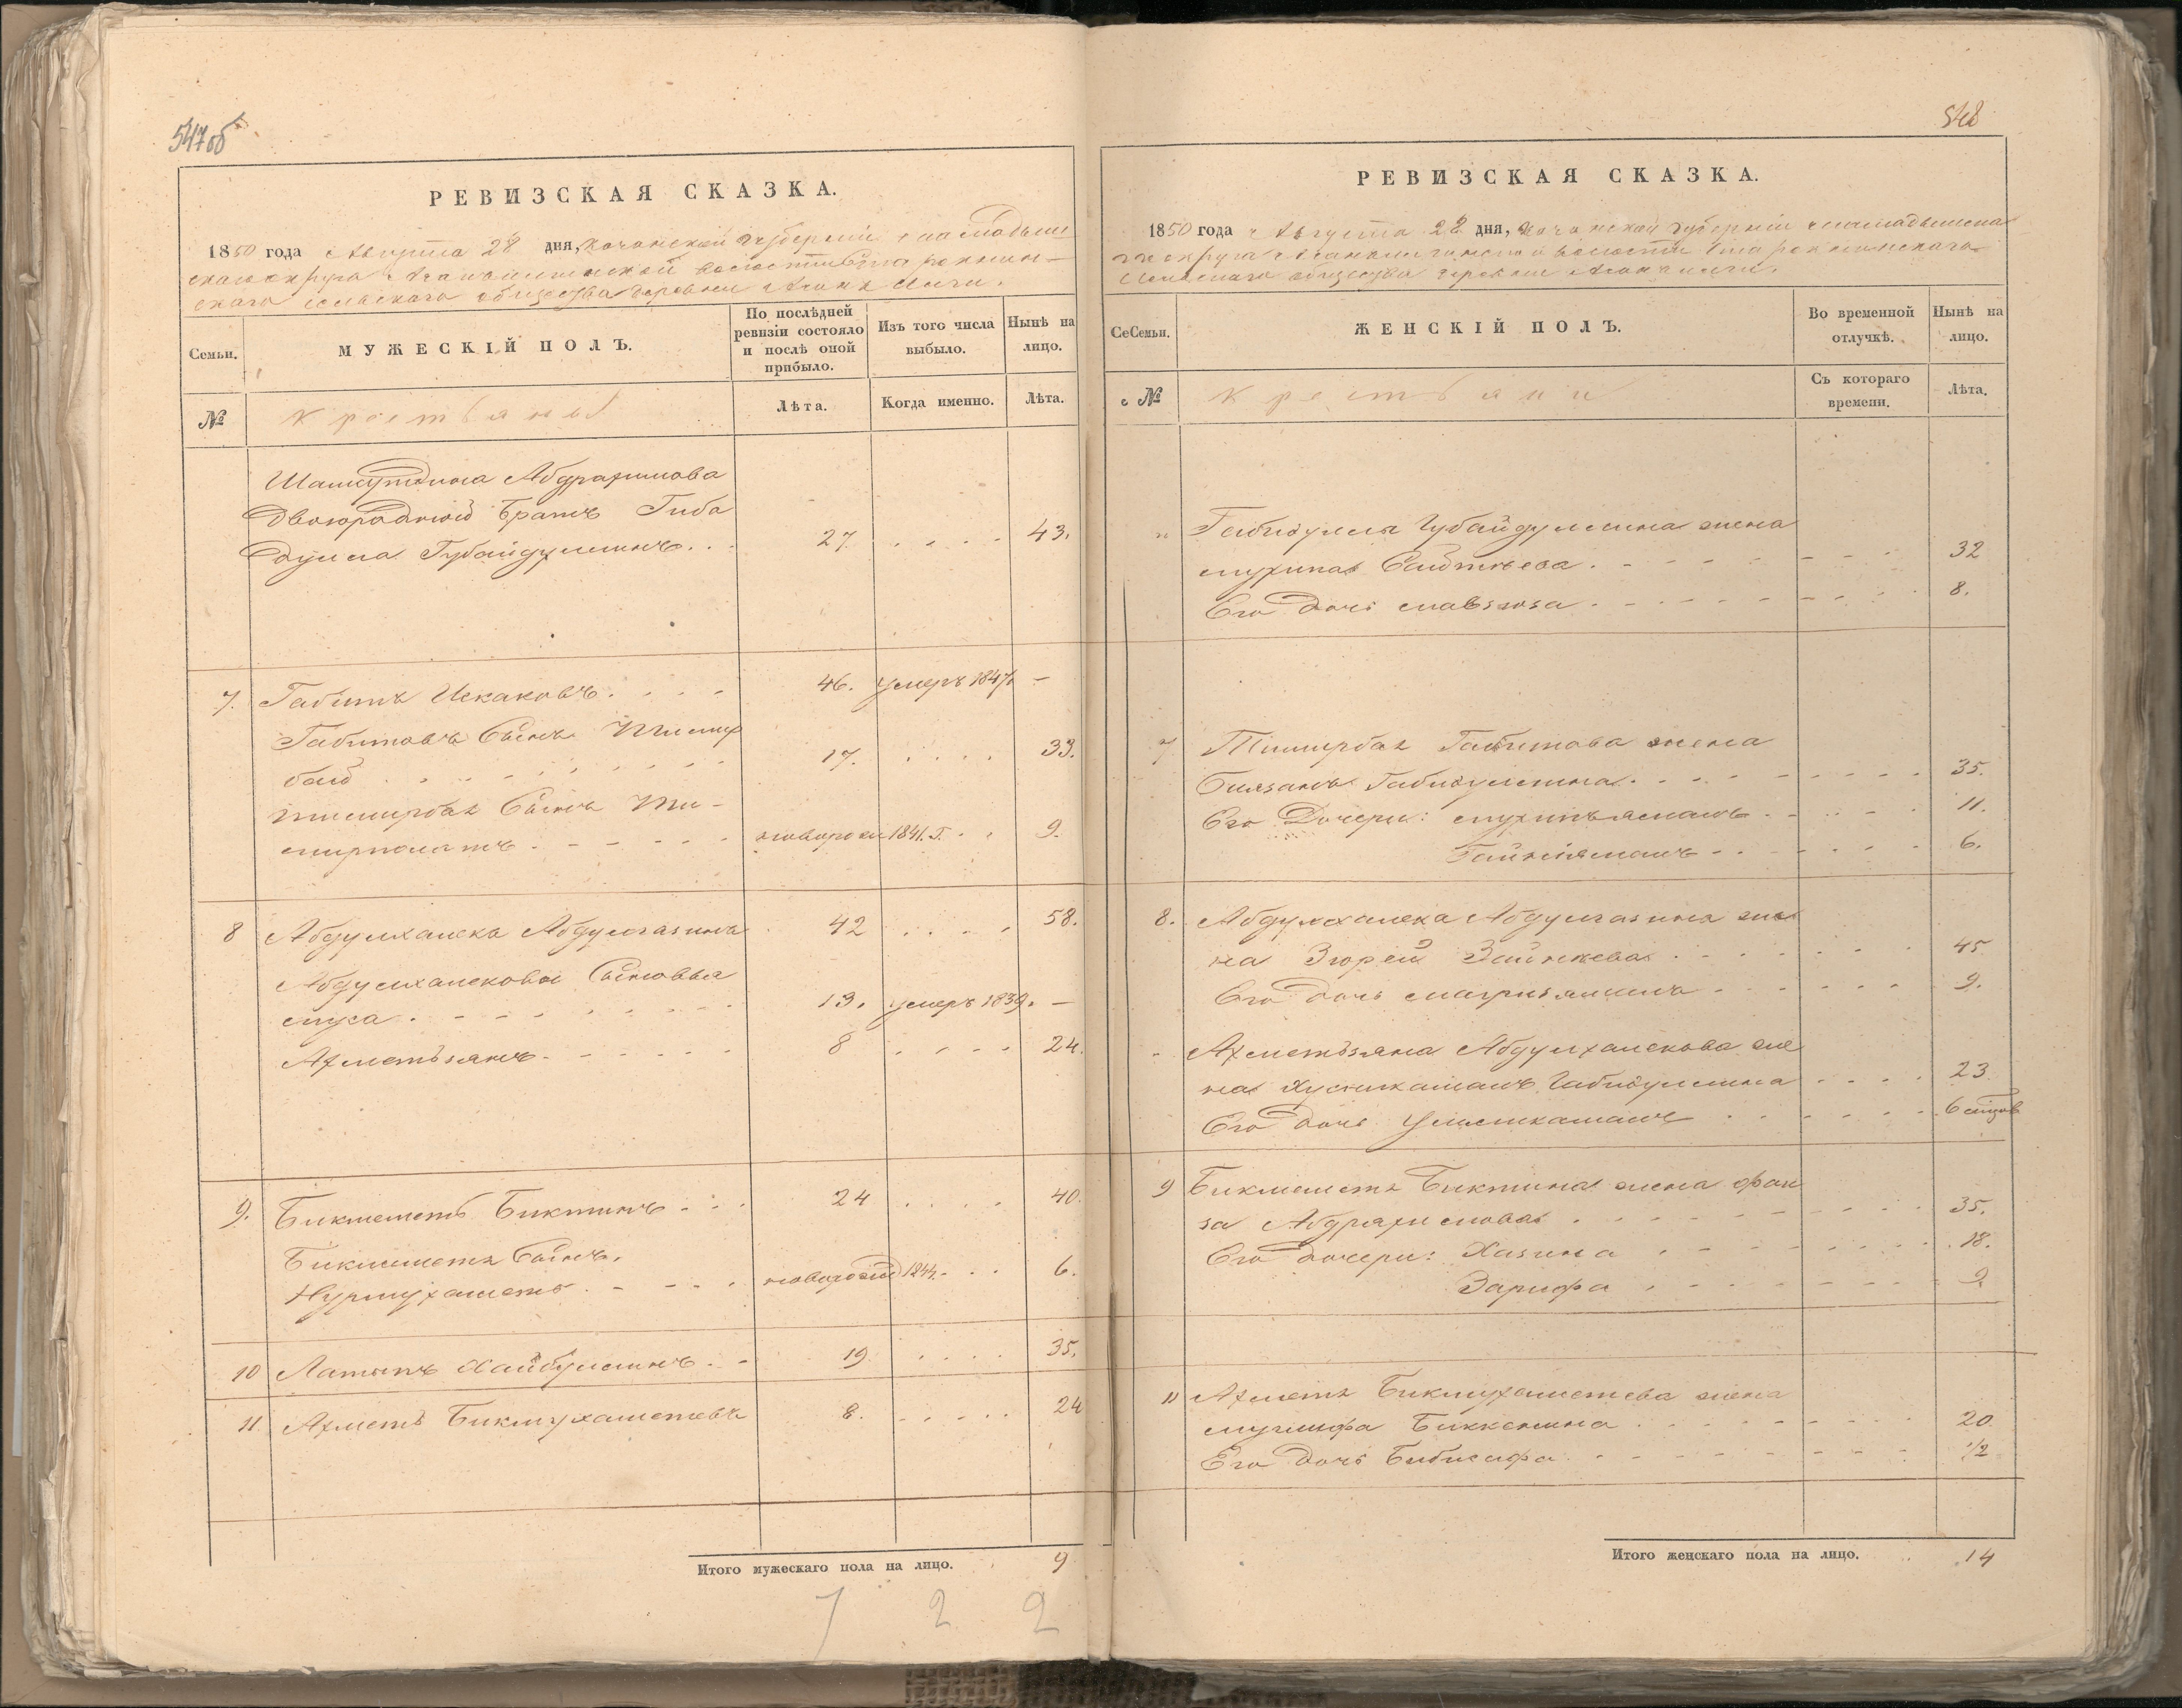 547об
РЕВИЗСКАЯ СКАЗКА.
1850 года Августа 28 дня, Казанской Губернии Мамадыш
скаго округа волости
скаго сельскаго общества деревни
Семьи.
МУЖЕСКІЙ ПОЛЪ.
По послѣдней
ревизіи состояло
и послѣ оной
прибыло.
Изъ того числа
выбыло.
Нынѣ на
лицо.
№
Крестьяне
Лѣта.
Когда именно.
Лѣта.
Шамсутдина Абдрахимова
Двоюродной Братъ Гиба
дулла Губайдуллинъ . . 27. . . . . 43.
7. Габитъ Искаковъ . . . . 46. умеръ 1847. —
Габитовъ Сынъ Тимир
бай . . . . . . . 17. . . . . 33.
Тимирбая Сынъ Ти-
мирполатъ . - - - - новорож 1841. г. . . 9.
8 Абдулхалека Абдулгазина 42 . . . . 58.
Абдулхалековы Сыновья
Муса . - - - - - 13. умеръ 1839. —
Ахметьзянъ - - - - - 8 . . . . 24.
9. Бикмеметь Биктинъ . . . 24 . . . . 40.
Бикмемета Сынъ.
Нурмухаметь . - - - новорож 1844. . . 6.
10 Латыпъ Хайбуллинъ . - 19. . . . . 35.
11 Ахметь Бикмухаметевъ 8. . . . . . 24
Итого мужескаго пола на лицо. . 9
7 2 2
548
РЕВИЗСКАЯ СКАЗКА.
1850 года Августа 28 дня, Казанской Губерніи Мамадышска
го округа волости
сельскаго общества деревни
Семьи.
ЖЕНСКІЙ ПОЛЪ.
Во временной
отлучкѣ.
Нынѣ на
лицо.
№
Крестьяни
Съ котораго
времени.
Лѣта.
" Гибидуллы Губайдуллина жена
Саитьева . - - - - 32
Его Дочь Мавзюза . - - - - 8.
7 Тимирбая Габитова жена
Гилязанъ Габидуллина . - - - - 35.
Его Дочери: Мухипъяманъ - - - 11.
Гайниямалъ - - - 6.
8. Абдулхалека Абдулгазина же
на Зюрей . - - - 45
Его дочь . - - - 9.
- Ахметьзяна Абдулхалекова же
на Хусникамалъ Габидуллина . . . . 23
Его Дочь Уммикамалъ . - - - 6 мѣцов
9 Бикмемета Биктина жена Фаи
за Абдрахимова . - - - - 35.
Его дочери: Хазина . - - - - 18.
Зарифа . - - - - 9
11 Ахмета Бикмухаметева жена
Муглифа Биккенина . - - - - 20.
Его Дочь Бибисафа . - - - - 1/2
Итого женскаго пола на лицо. . . 14